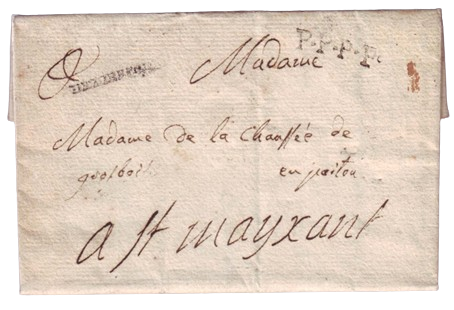 P.P.P.P.
Madame
Madame de la Chaussée de
en poitou
a st mayxant